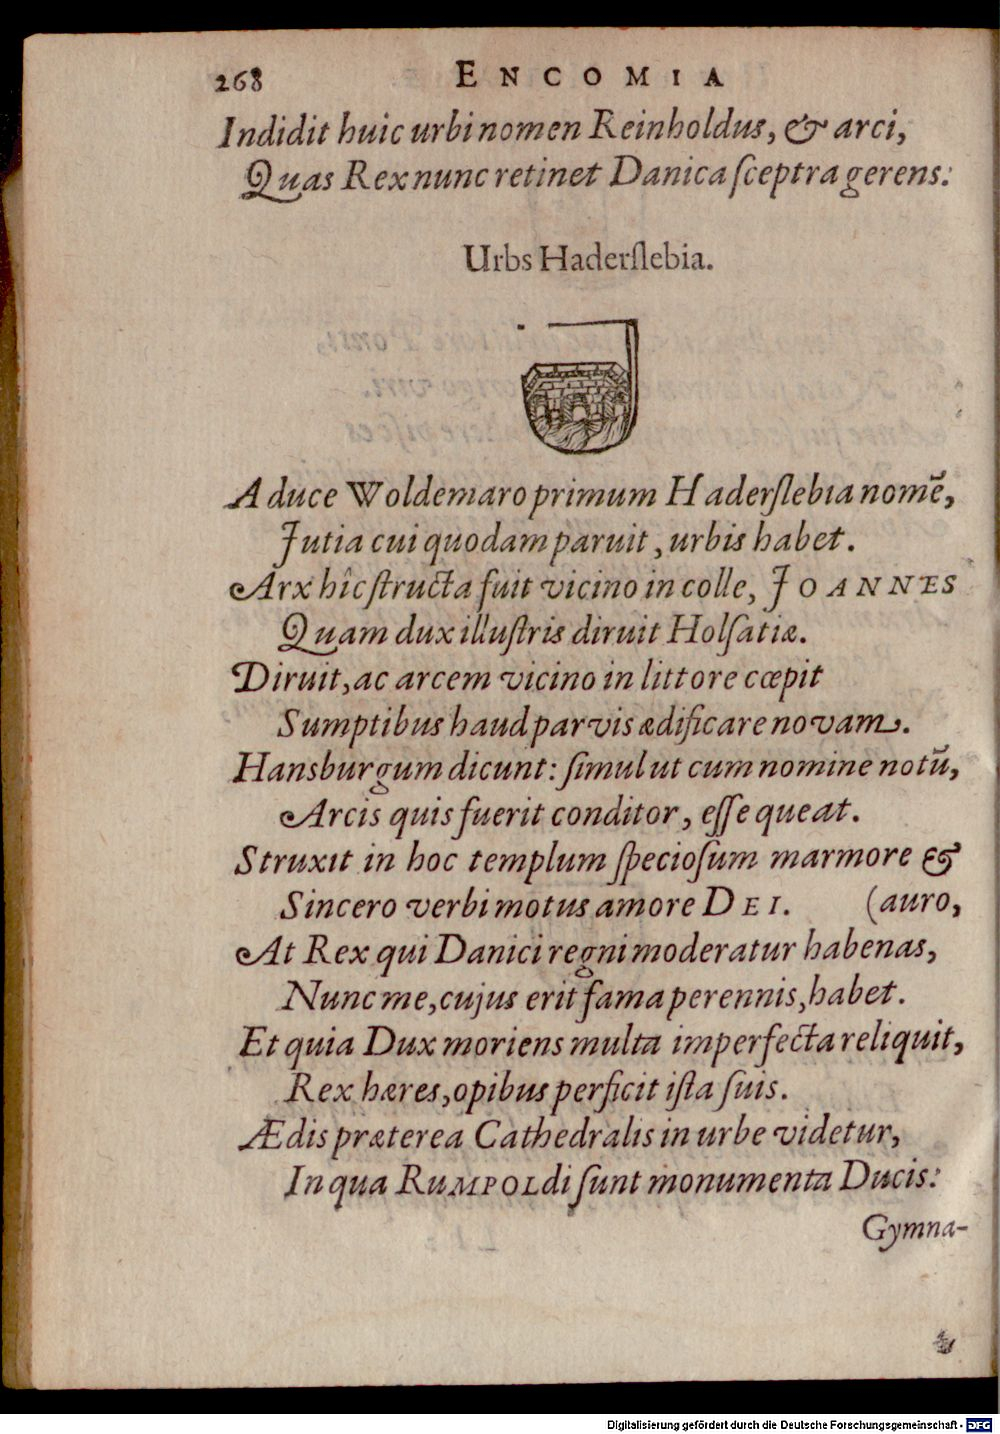 268 ENCOMIA
Indidit huic urbi nomen Reinholdus, & arci,
Quas Rex nunc retinet Danica ſceptra gerens.
Urbs Haderſlebia.
A duce Woldemaro primum Haderſlebia nomē,
Jutia cui quodam paruit, urbis habet.
Arx hîc ſtructa fuit vicino in colle, JOANNES
Quam dux illuſtris diruit Holſatiæ.
Diruit, ac arcem vicino in littore cœpit
Sumptibus haud parvis ædificare novam.
Hansburgum dicunt: ſimul ut cum nomine notū,
Arcis quis fuerit conditor, eſſe queat.
Struxit in hoc templum ſpecioſum marmore &
Sincero verbi motus amore DEI. (auro,
At Rex qui Danici regni moderatur habenas,
Nunc me, cujus erit fama perennis, habet.
Et quia Dux moriens multa imperfecta reliquit,
Rex hæres, opibus perficit iſta ſuis.
Ædis præterea Cathedralis in urbe videtur,
In qua RUMPOLdi ſunt monumenta Ducis:
Gymna-
Digitalisierung gefördert durch die Deutsche Forschungsgemeinschaft - DFG